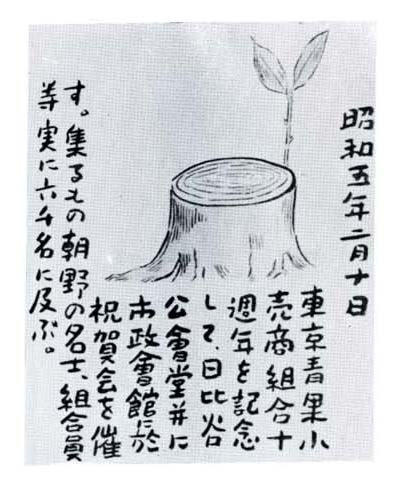 昭和五年二月十日
東京青果小
売商組合十
週年を記念
して、日比谷
公會堂并に
市政會館に於
祝賀会を催
す。集るもの朝野の名士、組合員
等実に六千名に及ぶ。